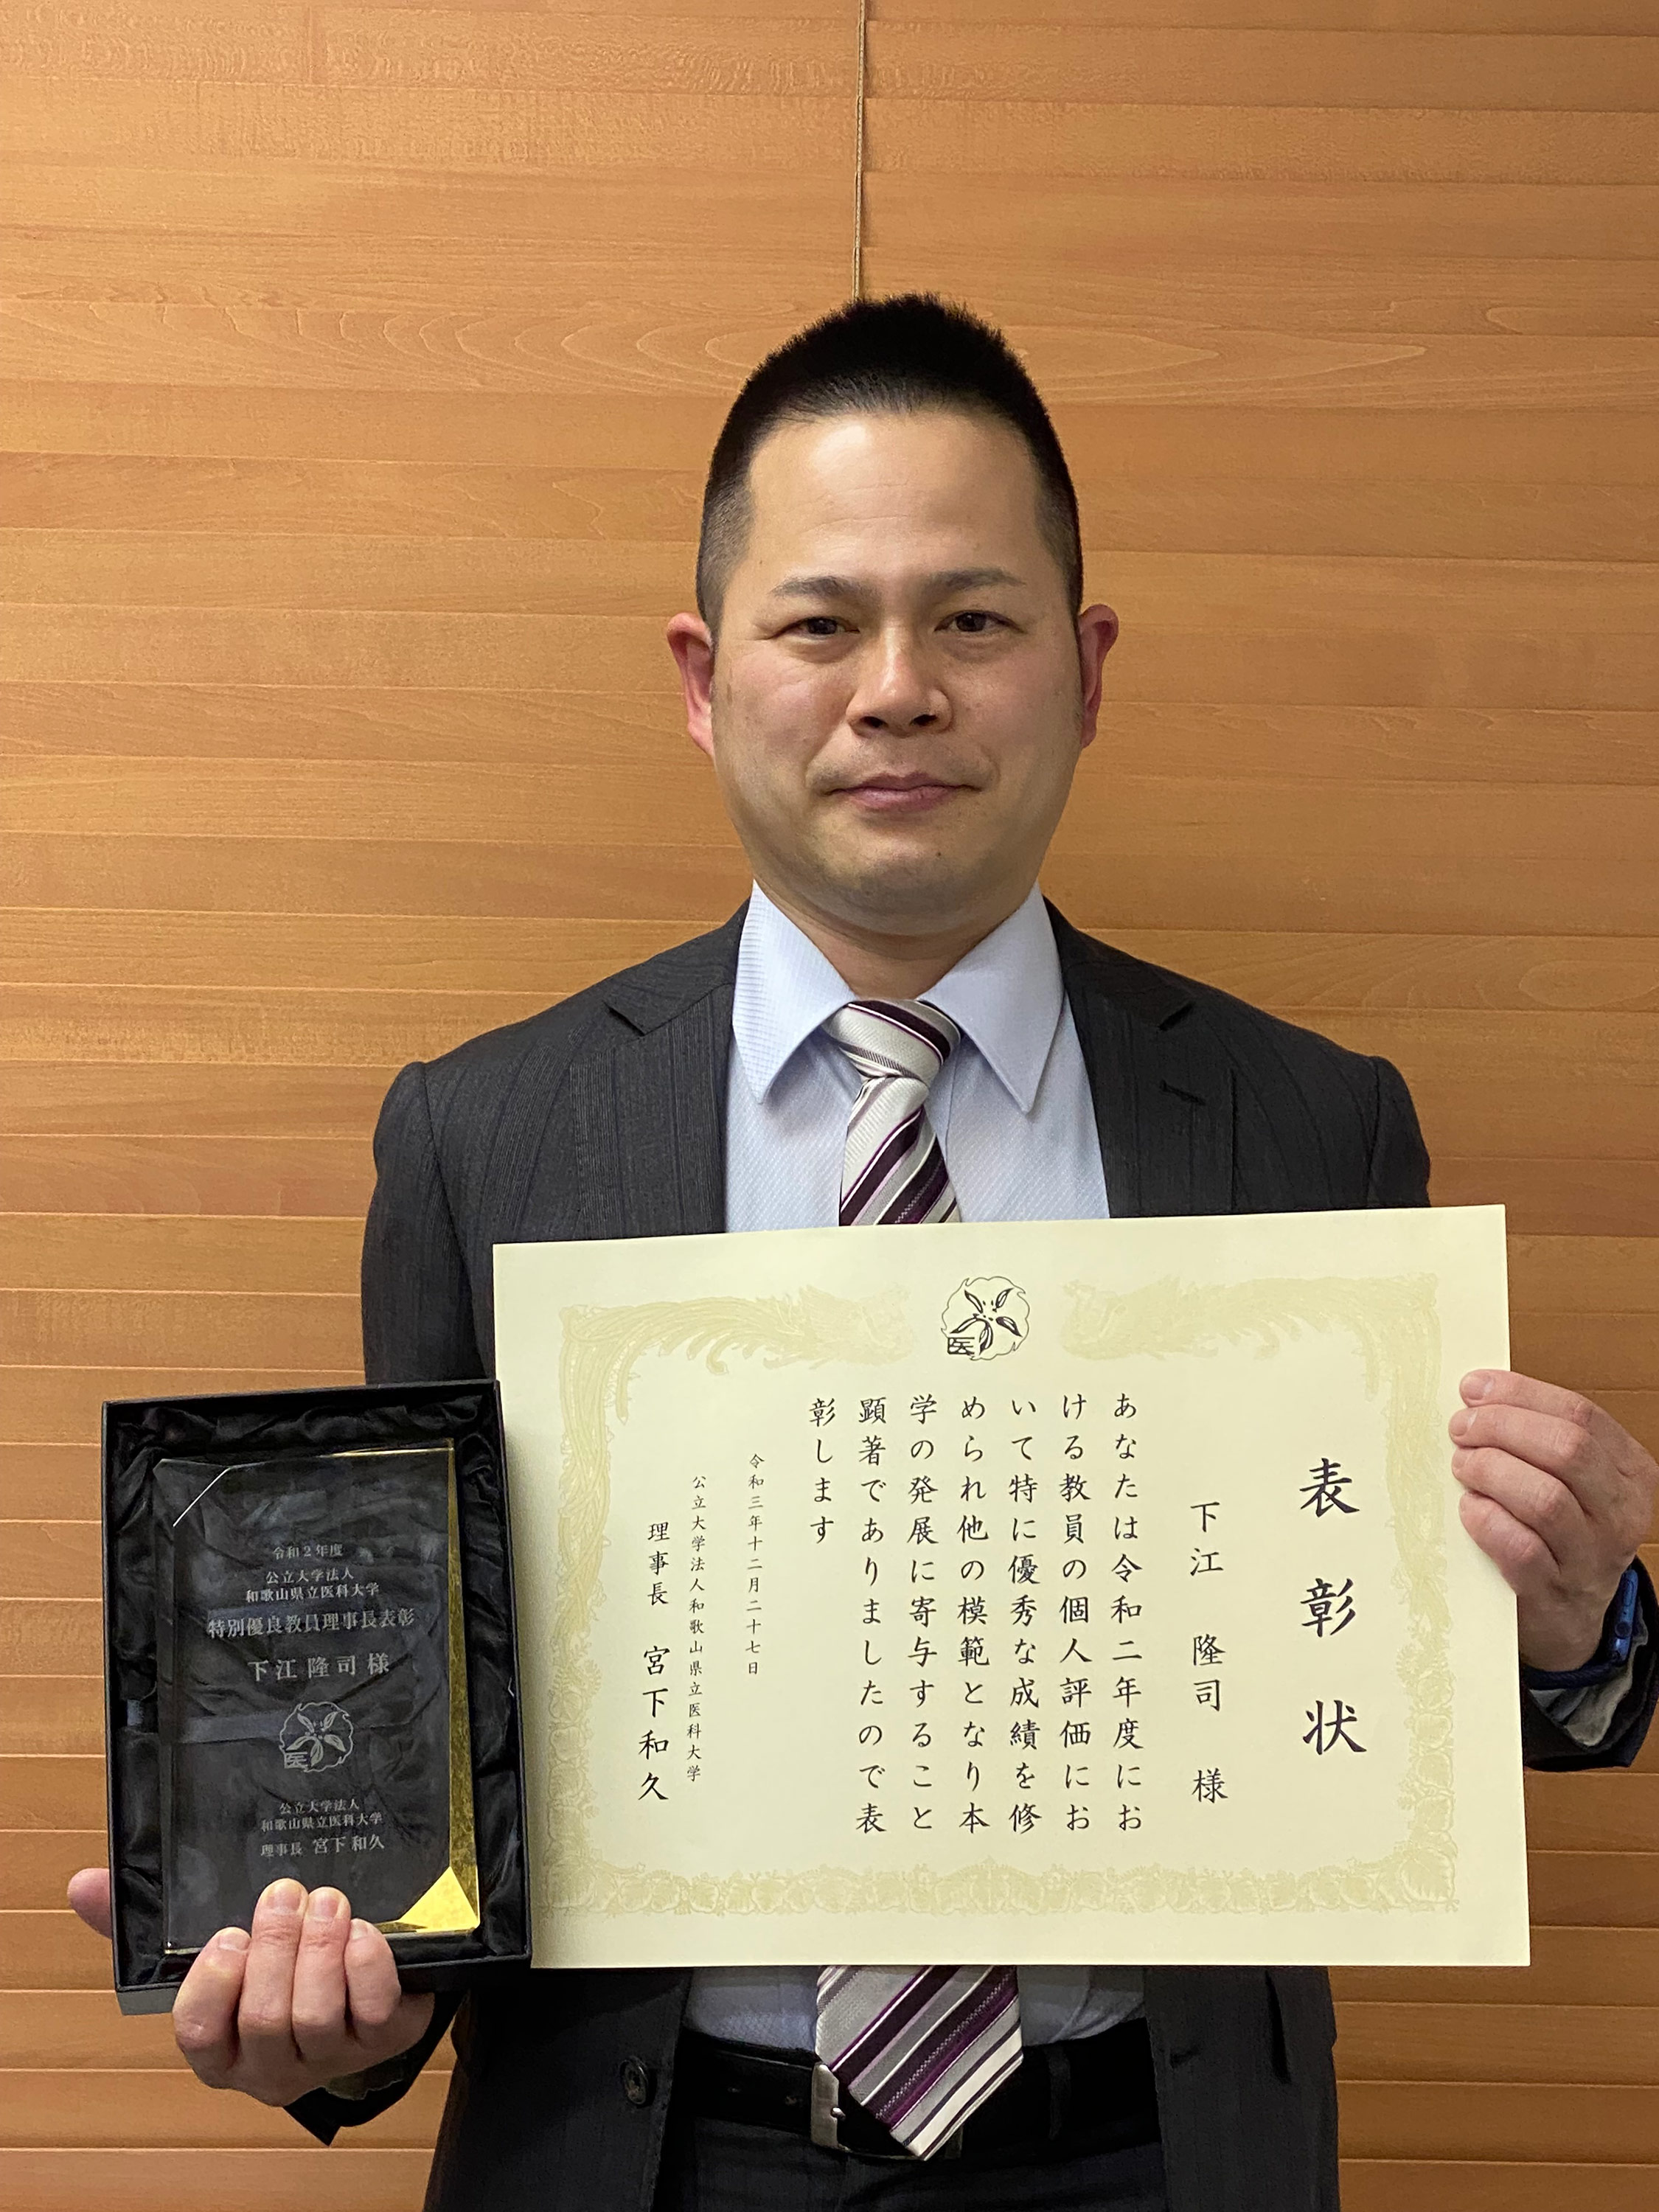 表彰状
下江 隆司 様
あなたは令和二年度にお
ける教員の個人評価にお
いて特に優秀な成績を修
められ他の模範となり本
学の発展に寄与すること
顕著でありましたので表
彰します
令和三年十二月二十七日
公立大学法人和歌山県立医科大学
理事長 宮下和久
医
令和2年度
公立大学法人
和歌山県立医科大学
特別優良教員理事長表彰
下江 隆司 様
医
公立大学法人
和歌山県立医科大学
理事長 宮下 和久